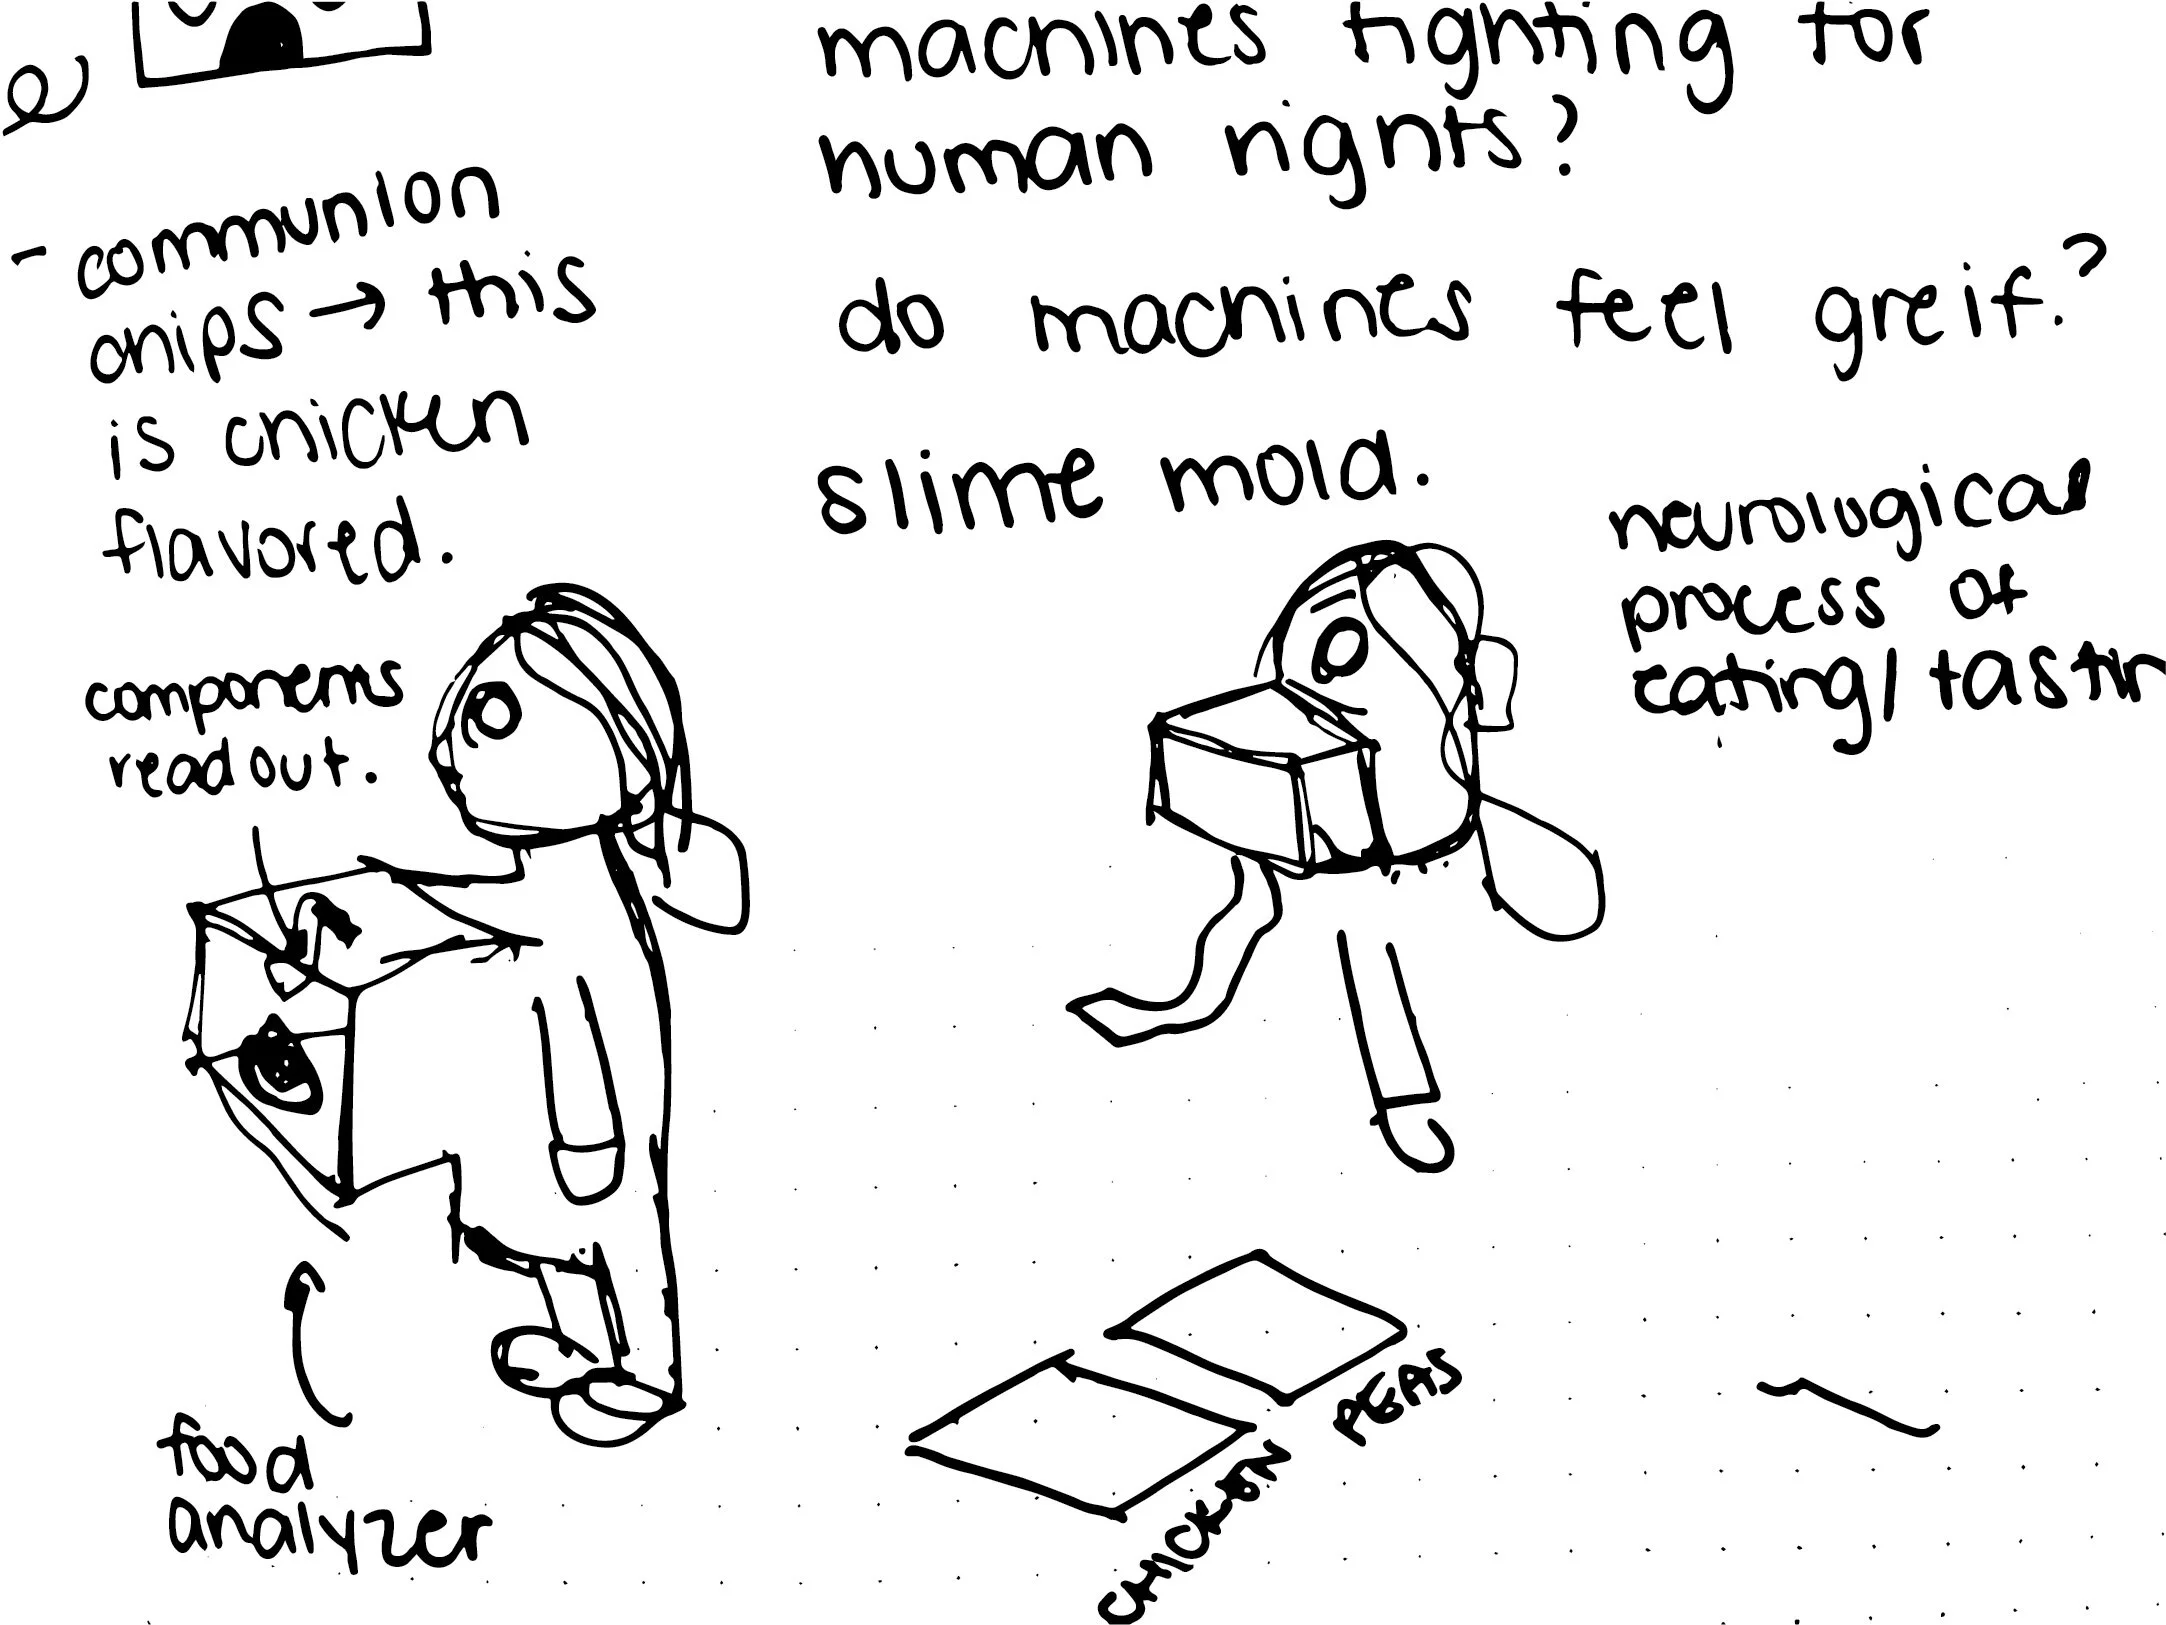 machines fighting for
human rights?
do machines feel greif?
slime mold.
- communion
chips → this
is chicken
flavored.
components
readout.
neurological
process of
eating/tastin
food
analyzer
PEAS
CHICKEN